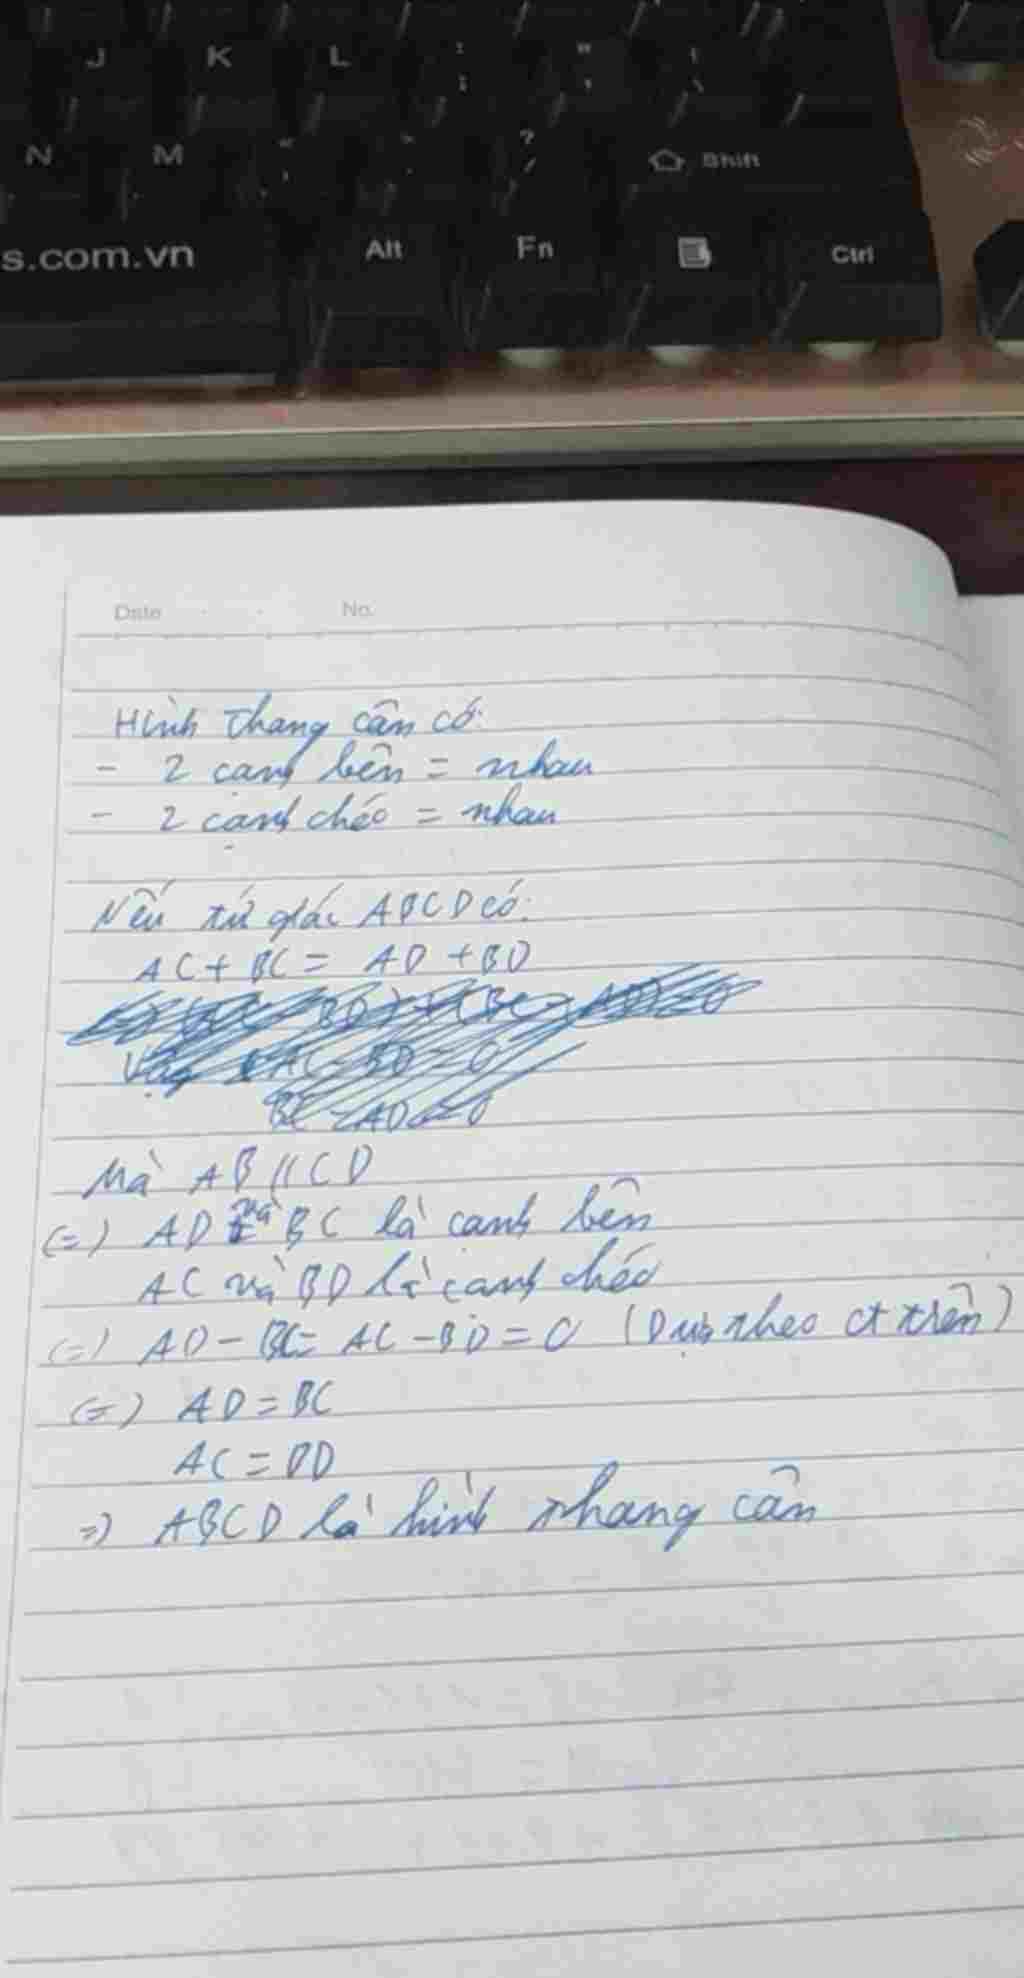 J K L : ; " '
N M ? / Shift
s.com.vn Alt Fn Ctrl
Date No.
Hình thang cân có:
- 2 cạnh bên = nhau
- 2 cạnh chéo = nhau
Nếu tứ giác ABCD có:
AC + BC = AD + BD
Mà AB // CD
(=) AD và BC là cạnh bên
AC và BD là cạnh chéo
(=) AD - BC = AC - BD = 0 (Dựa theo ct trên)
(=) AD = BC
AC = BD
=) ABCD là hình thang cân